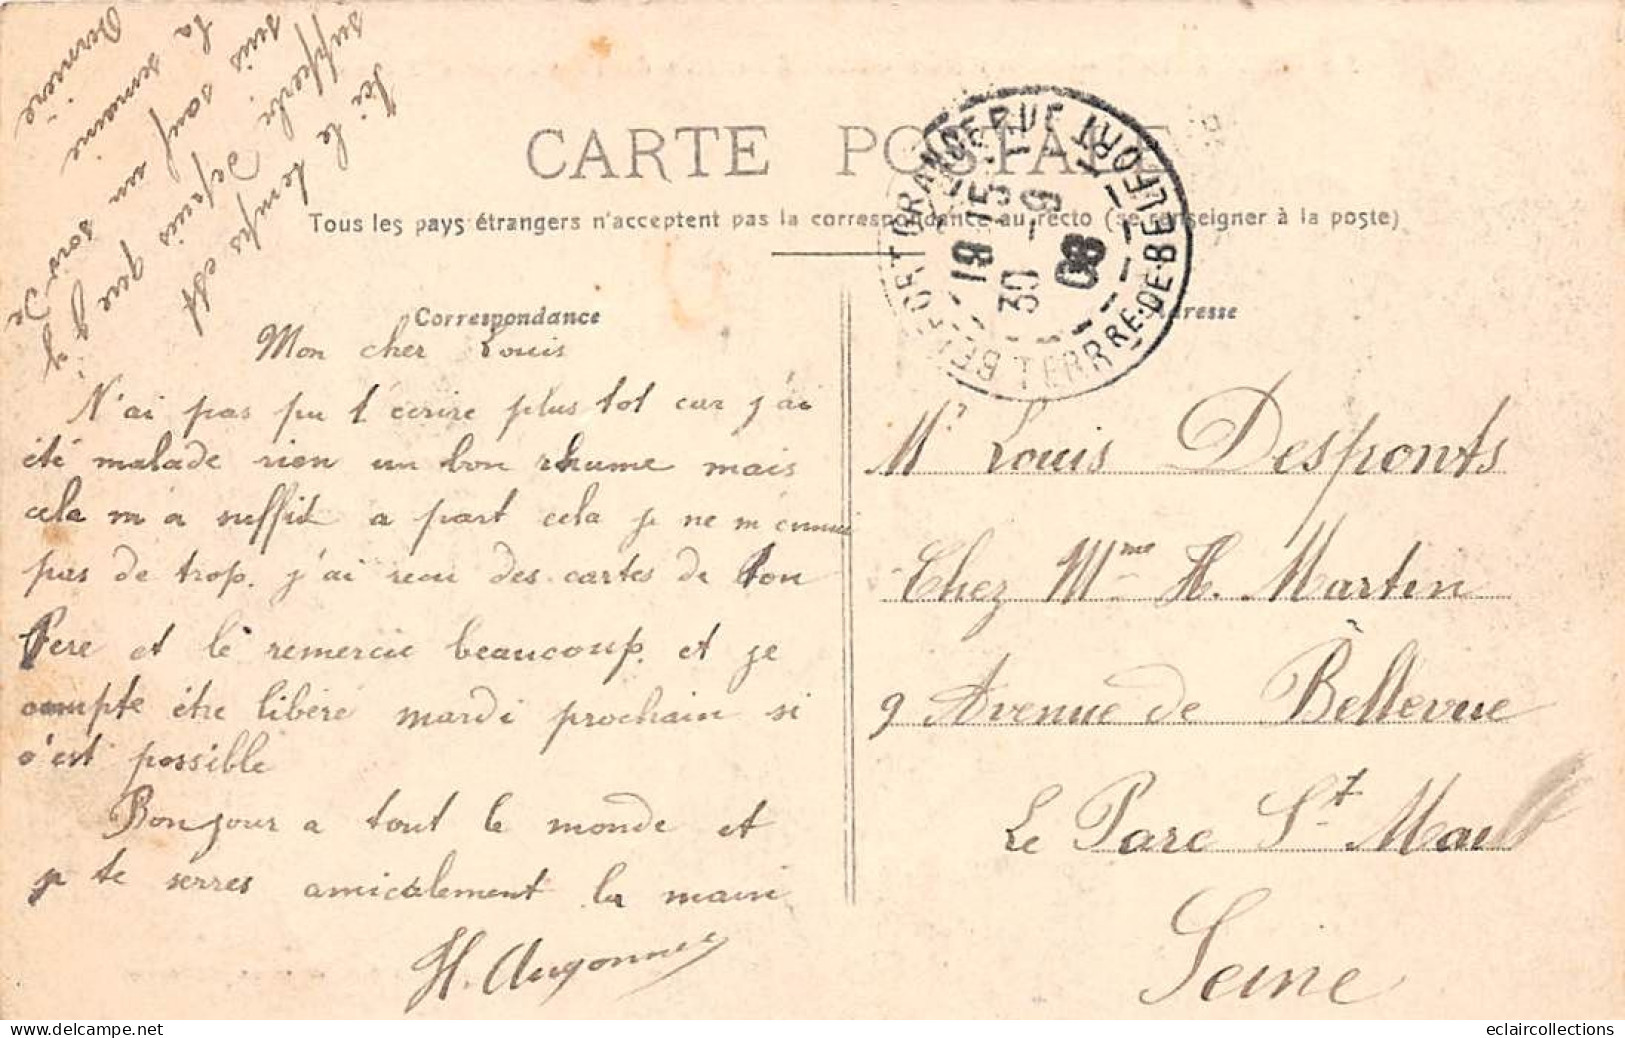 CARTE POSTALE
Tous les pays étrangers n'acceptent pas la correspondance au recto (se renseigner à la poste)
Correspondance
Adresse
BELFORT GRANDE RUE
TERRRE-DE-BELFORT
19 15
30 - 9
08
Mon cher Louis
N'ai pas pu t'ecrire plus tot car j'ai
été malade rien un bon rhume mais
cela m'a suffit a part cela je ne m'ennui
pas de trop. j'ai recu des cartes de ton
Pere et le remercie beaucoup. et je
compte être libéré mardi prochain si
c'est possible
Bonjour a tout le monde et
je te serres amicalement la main
H.
Ici le temps est
supporte. depuis que j'y
suis sauf un soir de
la semaine
Derniere
Mr Louis Desponts
Chez Mme H. Martin
9 Avenue de Bellevue
Le Parc St Maur
Seine
eclaircollections